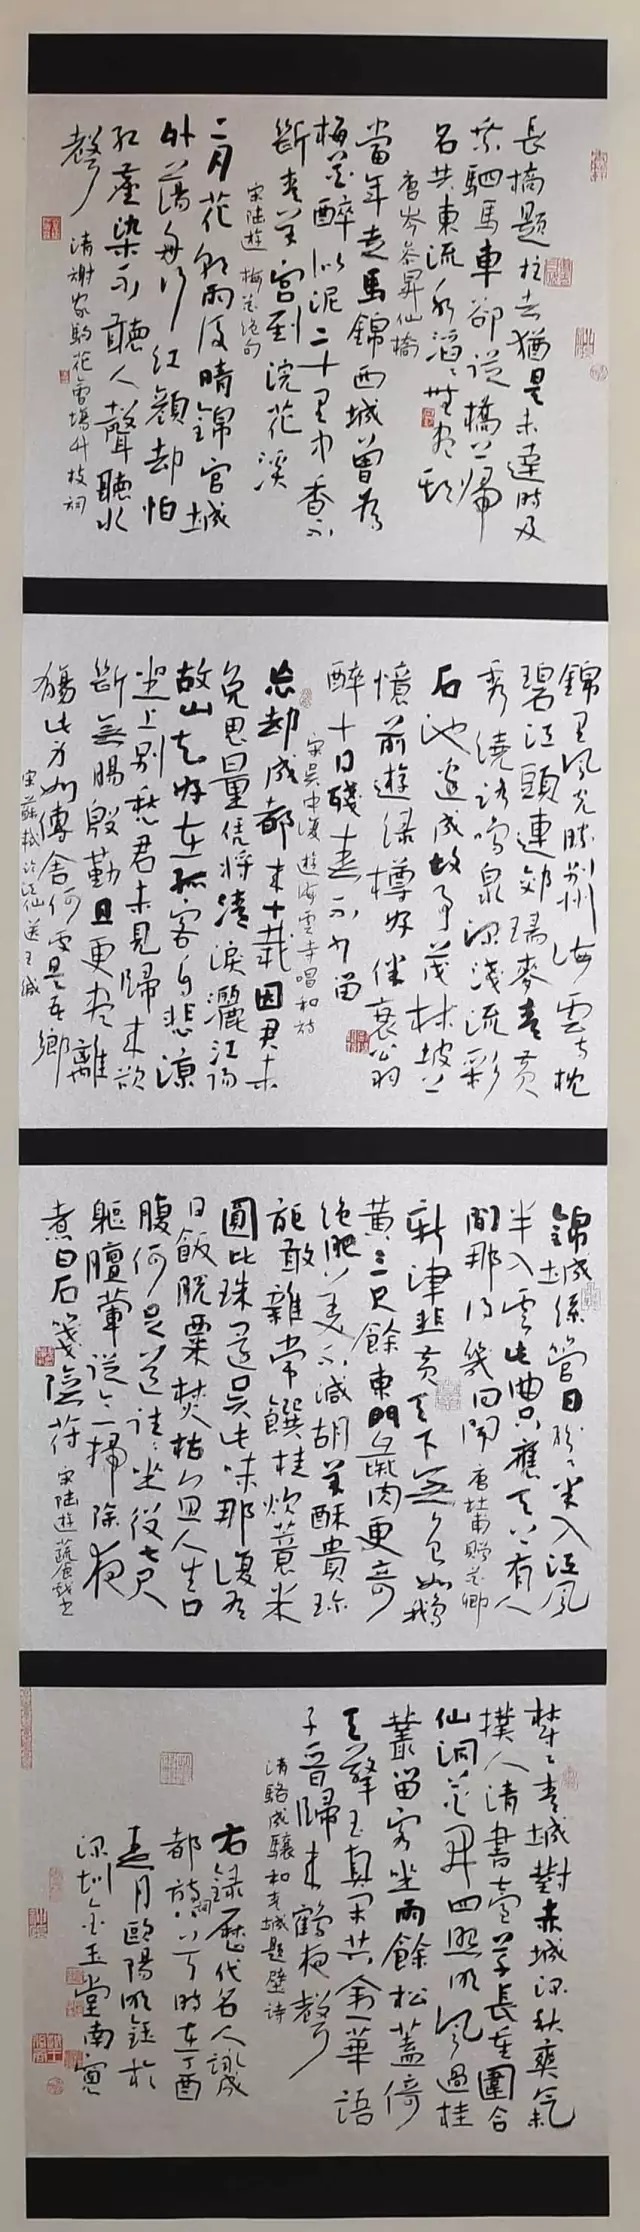 長橋題柱去猶是未達時及
乘駟馬車卻從橋上歸
名共東流水滔〻無盡期
唐岑參昇仙橋
當年走馬錦西城曾為
梅花醉似泥二十里中香不
斷青羊宮到浣花溪
宋陸遊梅花絕句
二月花朝雨後晴錦官城
外蕩舟行紅顏却怕
紅塵染不聽人聲聽水
聲
清謝家駒花會場竹枝詞
錦里風光勝別州海雲寺枕
碧江頭連郊瑞麥青黃
秀繞路鳴泉深淺流彩
石池邊成故事茂林坡上
憶前遊綠樽好伴衰翁
醉十日殘春不少留
宋吳中復遊海雲寺唱和詩
忘却成都來十載因君未
免思量凭將清淚灑江陽
故山知好在孤客自悲涼
坐上別愁君未見歸來欲
斷無腸殷勤且更盡離
觴此身如傳舍何處是吾鄉
宋蘇軾臨江仙送王緘
錦城絲管日紛〻半入江風
半入雲此曲只應天上有人
間那得幾回聞 唐杜甫贈花卿
新津韭黃天下無色如鵝
黃三尺餘東門彘肉更奇
絕肥美不減胡羊酥貴珍
詎敢雜常饌桂炊薏米
圓比珠還吳此味那復有
日飯脫粟焚枯魚人生口
腹何足道往〻坐役七尺
軀膻葷從今一掃除夜
煮白石箋陰符 宋陸遊蔬食戲書
青城對赤城深秋爽氣
撲人清書臺草長重圍合
仙洞花開四照明風過桂
叢留客坐雨餘松蓋倚
天擎玉真定共金華語
子晉歸來鶴夜聲
清駱成驤和青城題壁詩
右錄歷代名人詠成
都詩詞八首時在丁酉
春月歐陽明鈺於
深圳金玉堂南窗